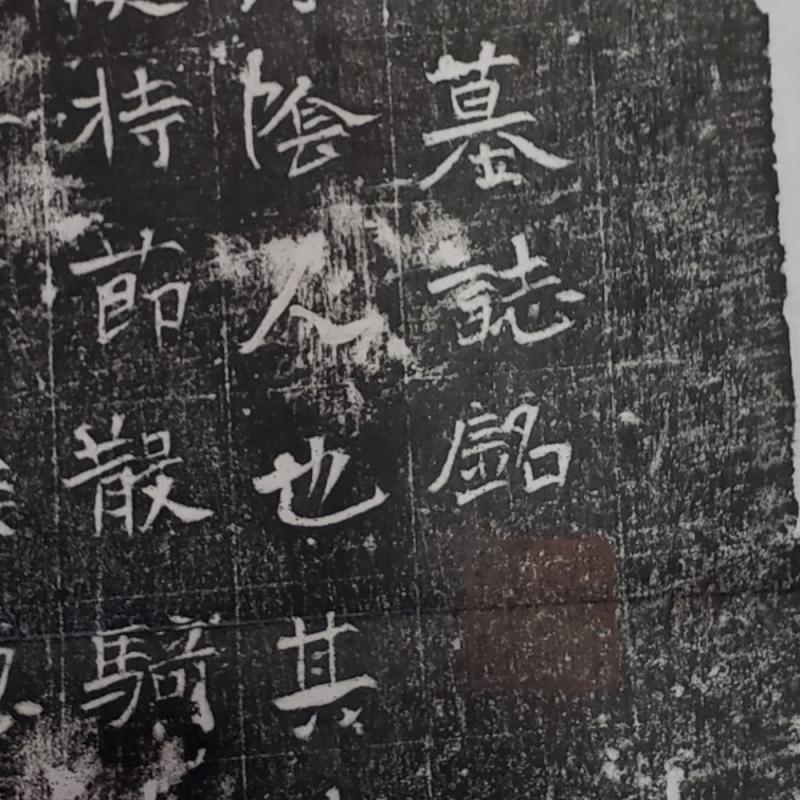 墓誌銘
陰人也其
持節散騎